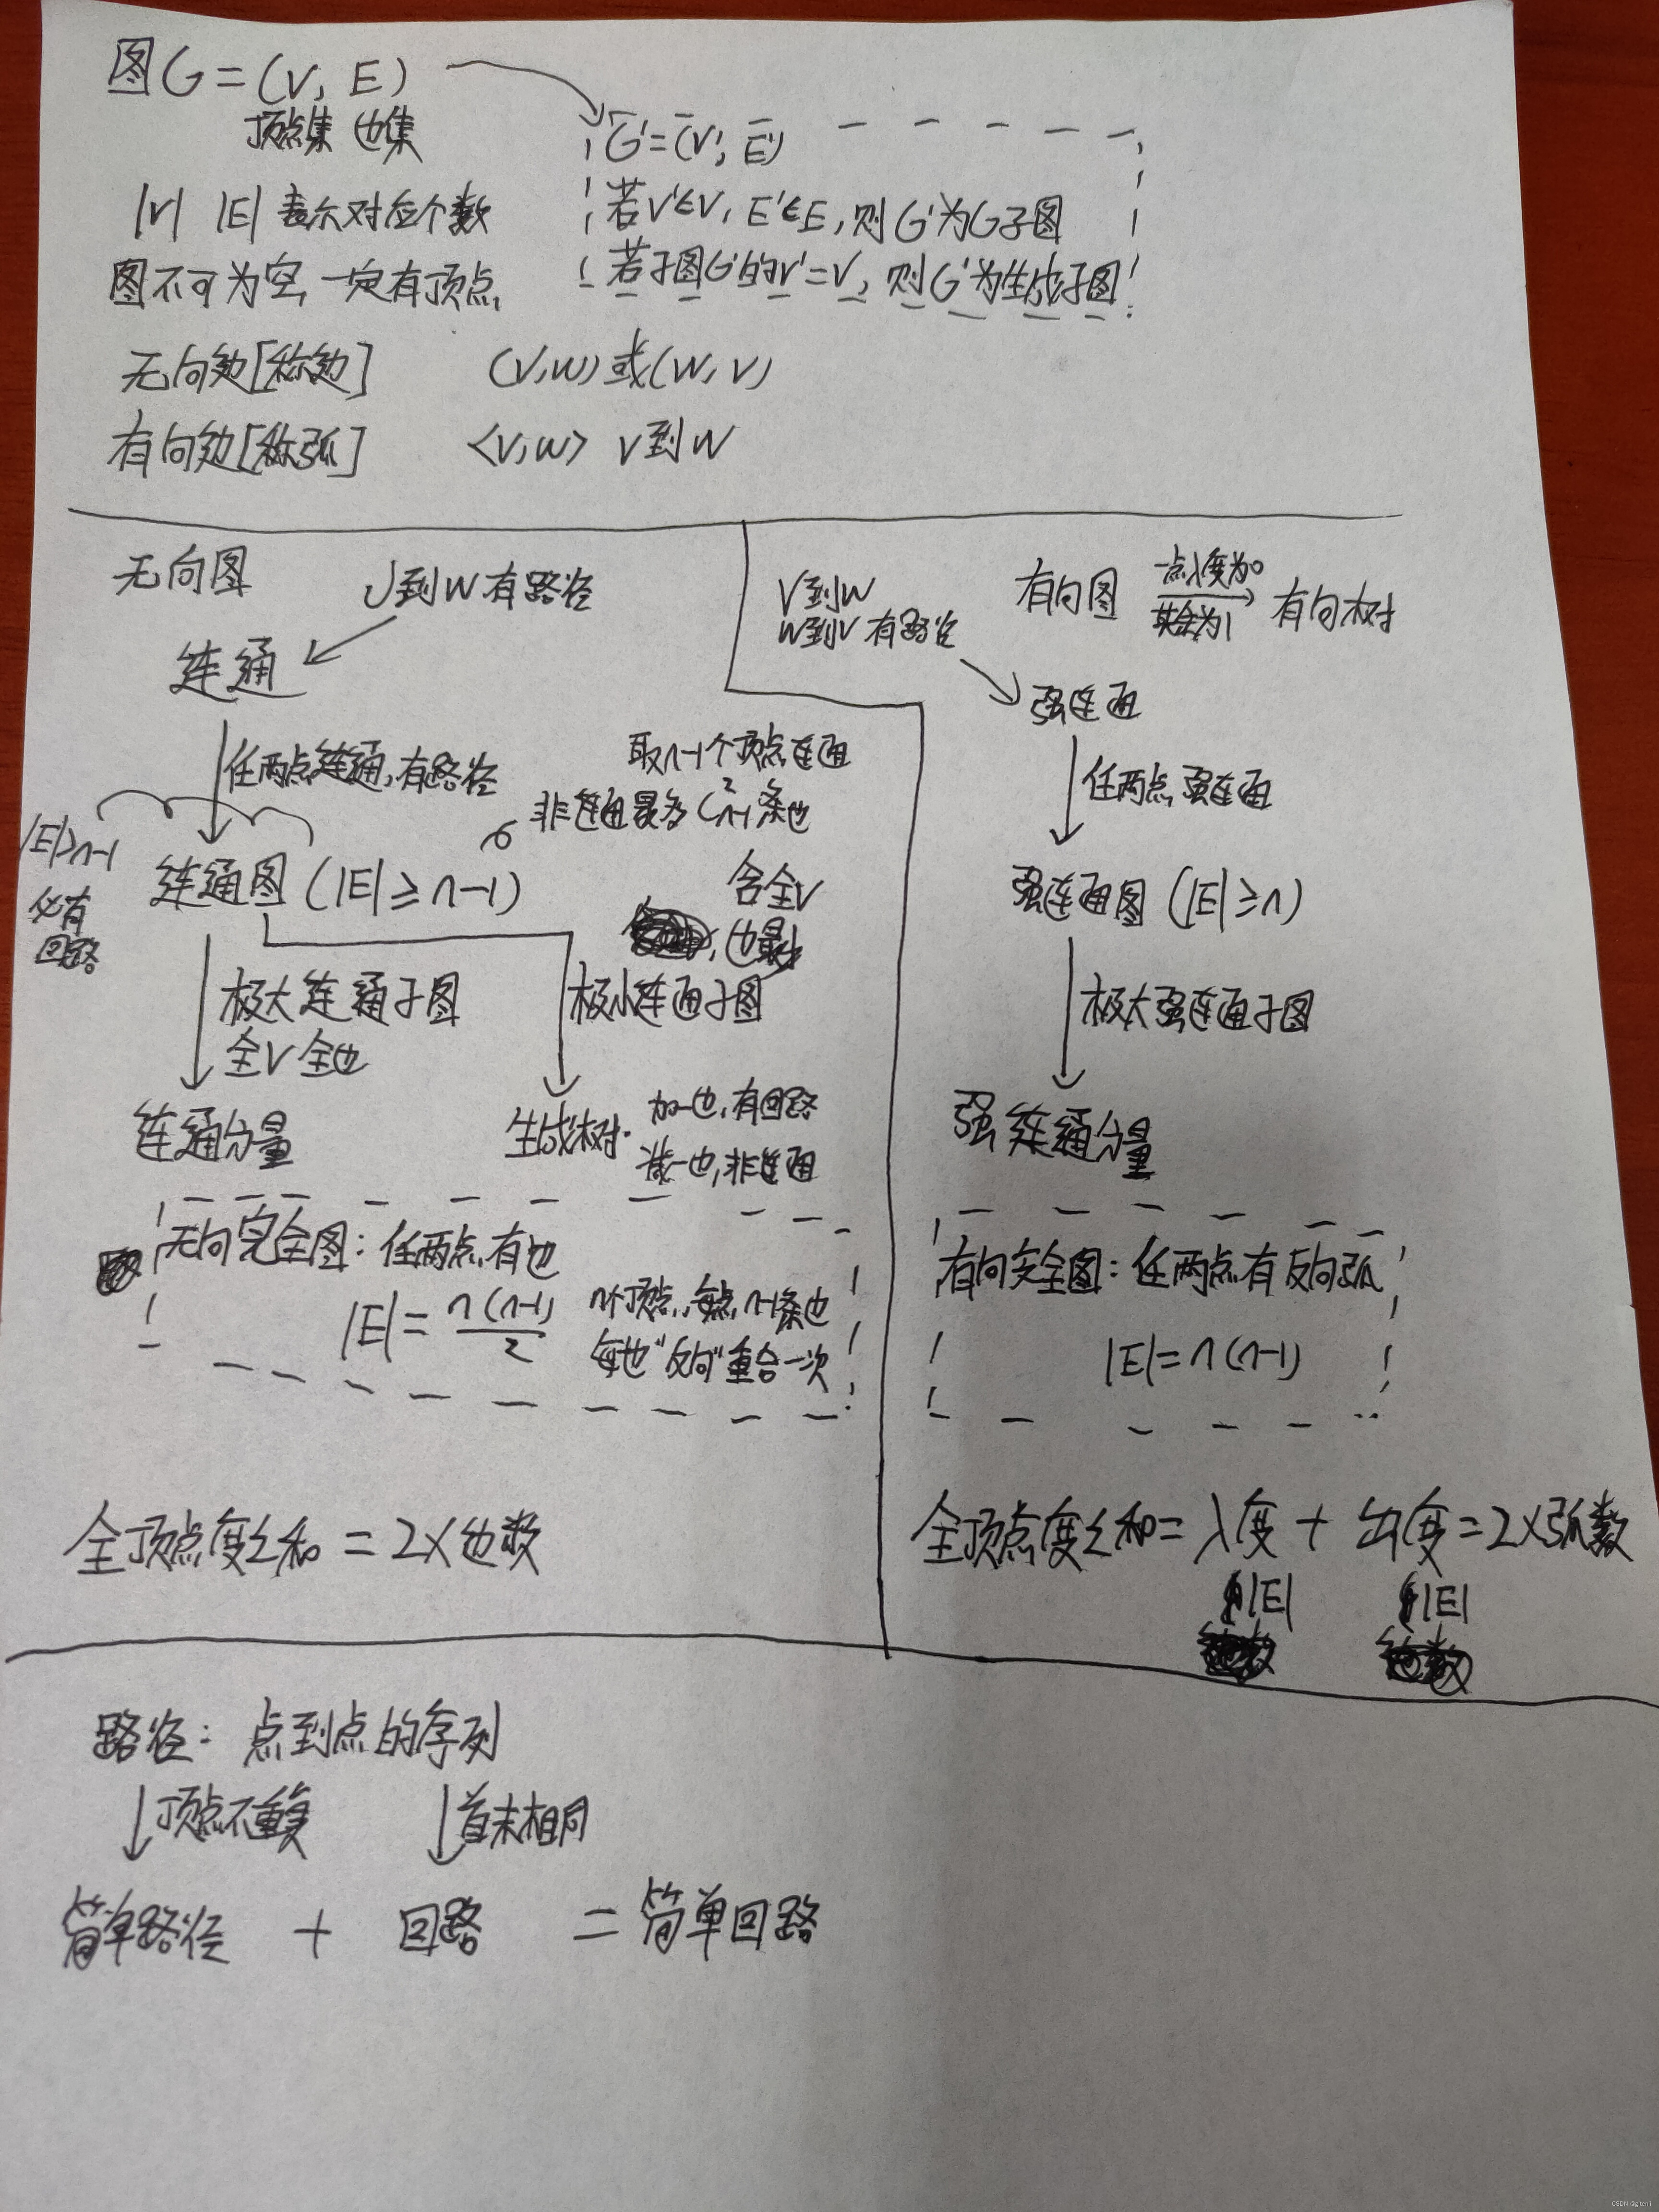 图G=(V, E)
顶点集 边集
|V| |E| 表示对应个数
图不可为空,一定有顶点
G'=(V', E')
若V'∈V, E'∈E, 则G'为G子图
若子图G'的V'=V, 则G'为生成子图
无向边[称边] (V,W)或(W,V)
有向边[称弧] <V,W> V到W
无向图 V到W有路径
连通
任两点连通,有路径
取n-1个顶点连通
非连通最多C²n-1条边
|E|>n-1
必有
回路
连通图(|E|≥n-1)
含全V
,边最少
极大连通子图
全V全边
极小连通子图
连通分量
生成树.
加一边,有回路
减一边,非连通
无向完全图:任两点有边
|E|=n(n-1)/2
n个顶点,每点n-1条边
每边"反向"重合一次
全顶点度之和=2×边数
V到W
W到V有路径
有向图 一点入度为0 其余为1 有向树
强连通
任两点强连通
强连通图(|E|≥n)
极大强连通子图
强连通分量
有向完全图:任两点有反向弧
|E|=n(n-1)
全顶点度之和=入度+出度=2×弧数
|E| |E|
路径:点到点的序列
顶点不重复 首末相同
简单路径 + 回路 =简单回路